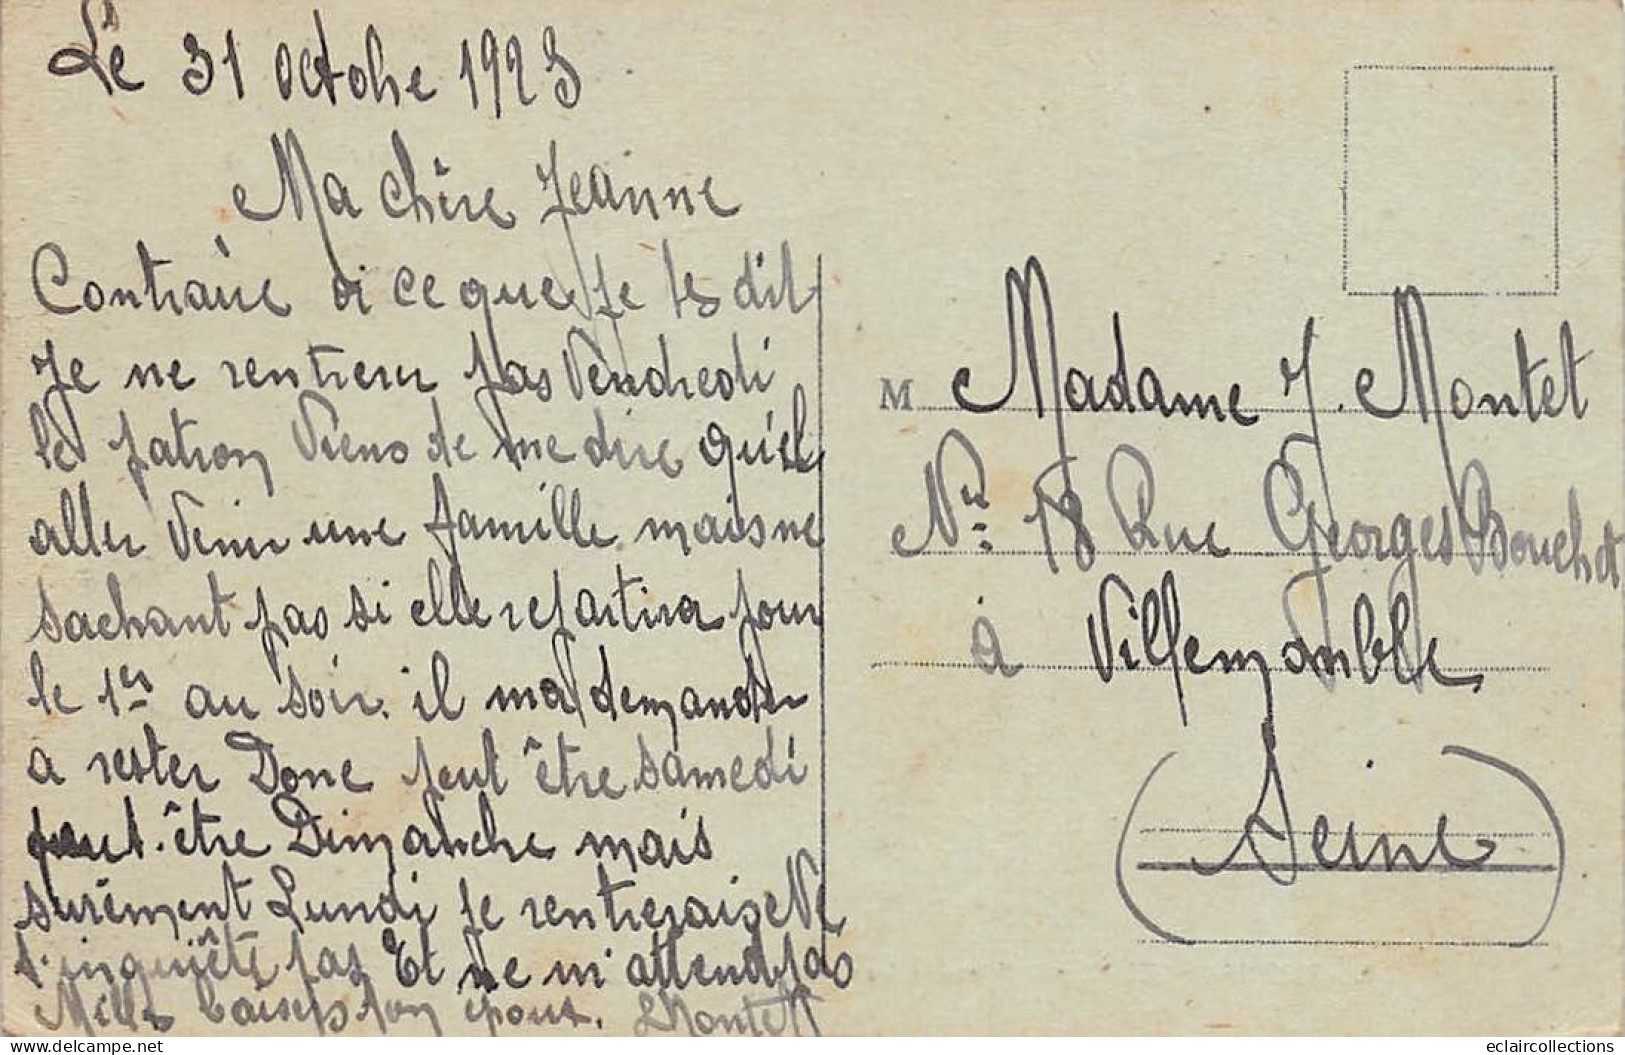 Le 31 octobre 1923
Ma chère Jeanne
Contraire à ce que je te dit
Je ne rentrerer pas Vendredi
le patron Viens de me dire qu'il
aller Venir une famille mais ne
sachant pas si elle repartira pour
le 1er au soir. il ma demander
a rester Donc peut être samedi
peut-être Dimanche mais
surément Lundi je rentrerais Ne
t'inquiète pas Et ne m'attend pas
Mille baisers ton époux. Montet
M Madame J. Montet
No 18 Rue Georges Bouchet
à Villemomble
(Seine)
eclaircollections
www.delcampe.net